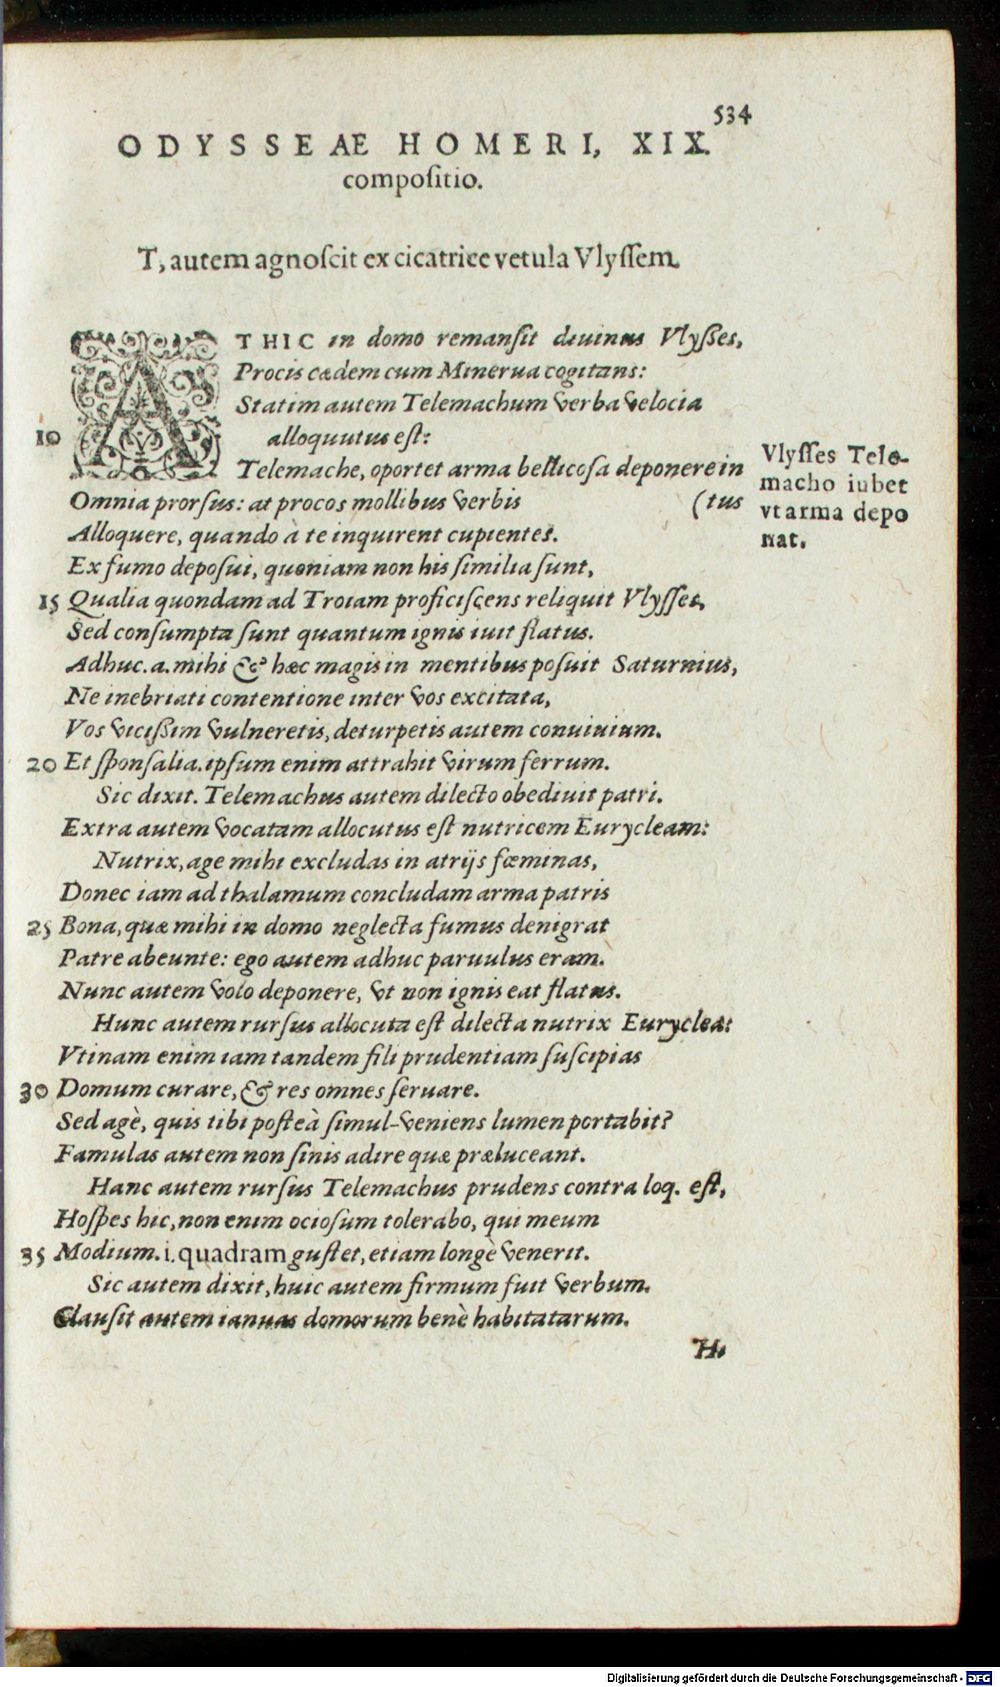 534
ODYSSEAE HOMERI, XIX.
compoſitio.
T, autem agnoſcit ex cicatrice vetula Vlyſſem.
AT HIC in domo remanſit diuinus Vlyſſes,
Procis cædem cum Minerua cogitans:
Statim autem Telemachum verba velocia
10 alloquutus eſt:
Telemache, oportet arma bellicoſa deponere in
Omnia prorſus: at procos mollibus verbis (tus
Alloquere, quando à te inquirent cupientes.
Ex fumo depoſui, quoniam non his ſimilia ſunt,
15 Qualia quondam ad Troiam proficiſcens reliquit Vlyſſes,
Sed conſumpta ſunt quantum ignis iuit flatus.
Adhuc .a. mihi & hæc magis in mentibus poſuit Saturnius,
Ne inebriati contentione inter vos excitata,
Vos viciſſim vulneretis, deturpetis autem conuiuium.
20 Et ſponſalia. ipſum enim attrahit virum ferrum.
Sic dixit. Telemachus autem dilecto obediuit patri.
Extra autem vocatam allocutus eſt nutricem Eurycleam:
Nutrix, age mihi excludas in atrijs fœminas,
Donec iam ad thalamum concludam arma patris
25 Bona, quæ mihi in domo neglecta fumus denigrat
Patre abeunte: ego autem adhuc paruulus eram.
Nunc autem volo deponere, vt non ignis eat flatus.
Hunc autem rurſus allocuta eſt dilecta nutrix Euryclea:
Vtinam enim iam tandem fili prudentiam ſuſcipias
30 Domum curare, & res omnes ſeruare.
Sed agè, quis tibi poſteà ſimul-veniens lumen portabit?
Famulas autem non ſinis adire quæ præluceant.
Hanc autem rurſus Telemachus prudens contra loq. eſt,
Hoſpes hic, non enim ocioſum tolerabo, qui meum
35 Modium .i. quadram guſtet, etiam longè venerit.
Sic autem dixit, huic autem firmum fuit verbum.
Clauſit autem ianuas domorum benè habitatarum.
H.
Vlyſſes Tele-
macho iubet
vt arma depo
nat.
Digitalisierung gefördert durch die Deutsche Forschungsgemeinschaft - DFG